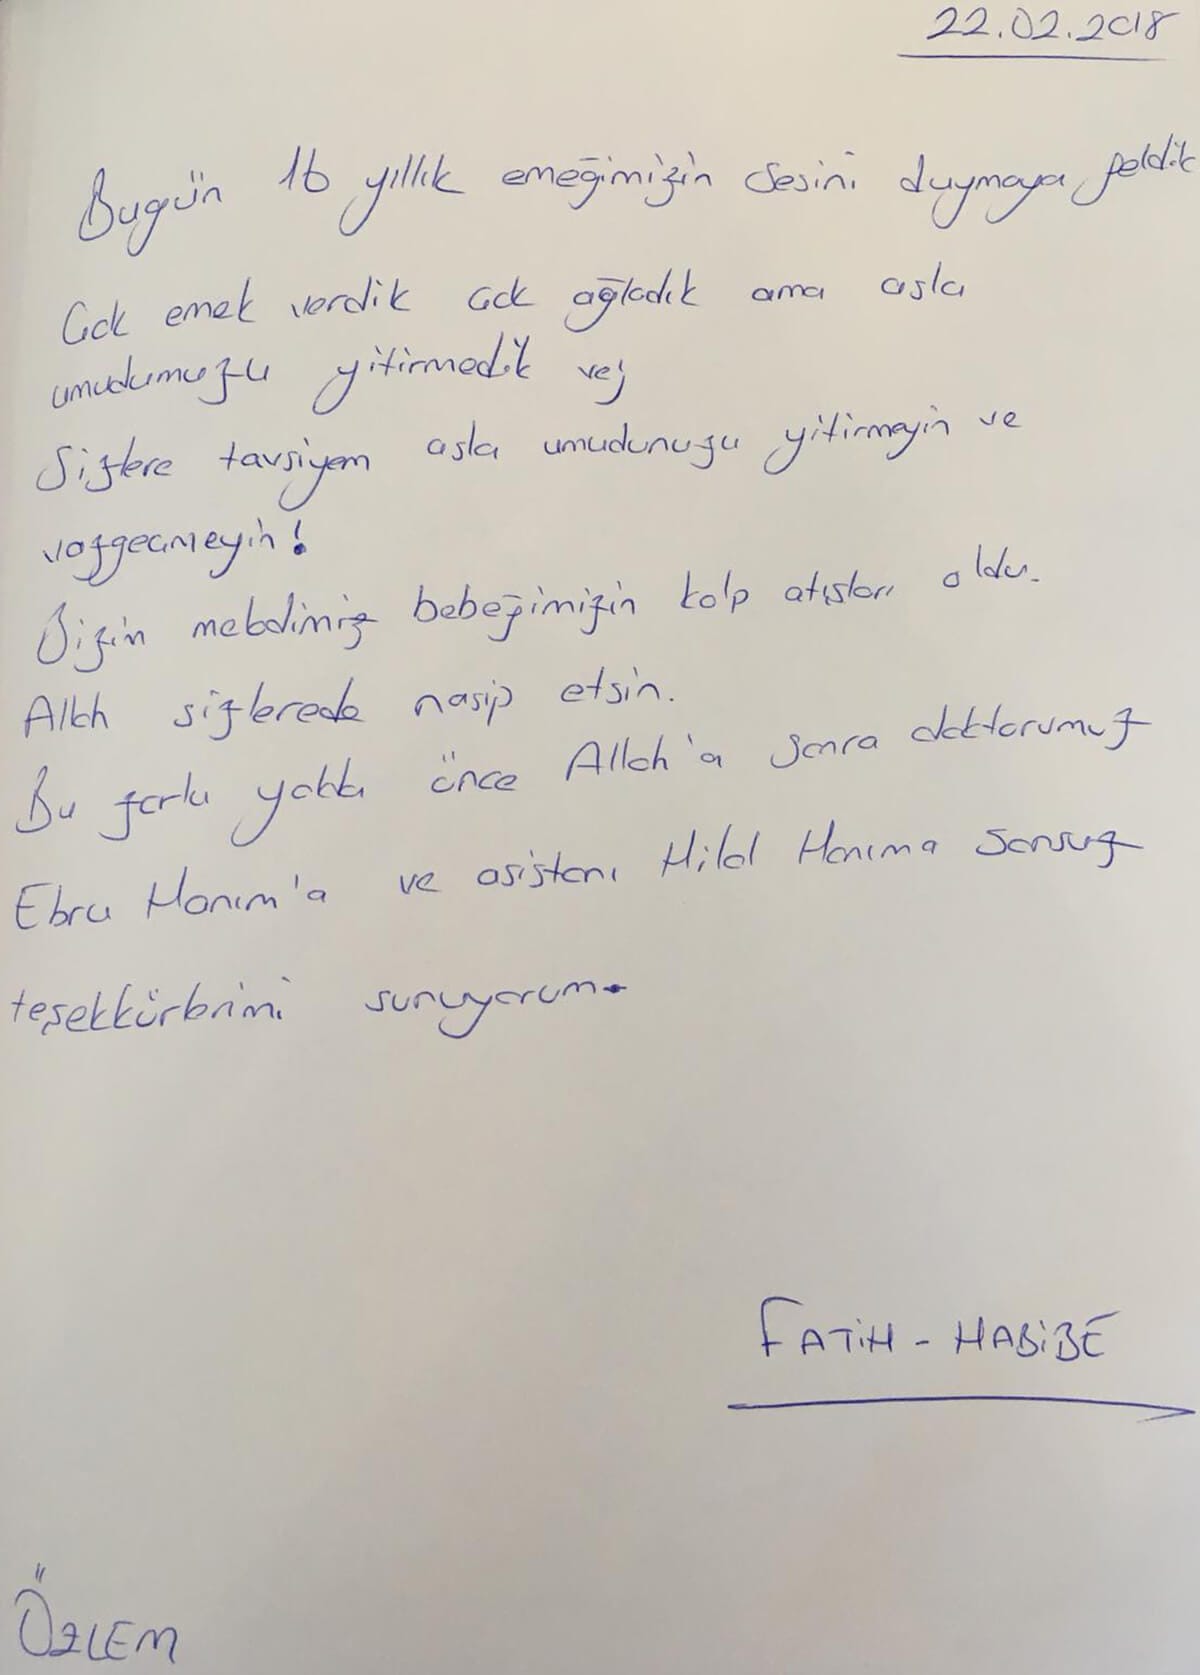 22.02.2018
Bugün 16 yıllık emeğimizin sesini duymaya geldik
Çok emek verdik çok ağladık ama asla
umudumuzu yitirmedik ve;
Sizlere tavsiyem asla umudunuzu yitirmeyin ve
vazgeçmeyin!
Bizim mebdimiz bebeğimizin kalp atışları oldu.
Allah sizlerede nasip etsin.
Bu zorlu yolda önce Allah'a sonra doktorumuz
Ebru Hanım'a ve asistanı Hilal Hanıma sonsuz
teşekkürlerimi sunuyorum.
FATİH - HABİBE
ÖZLEM